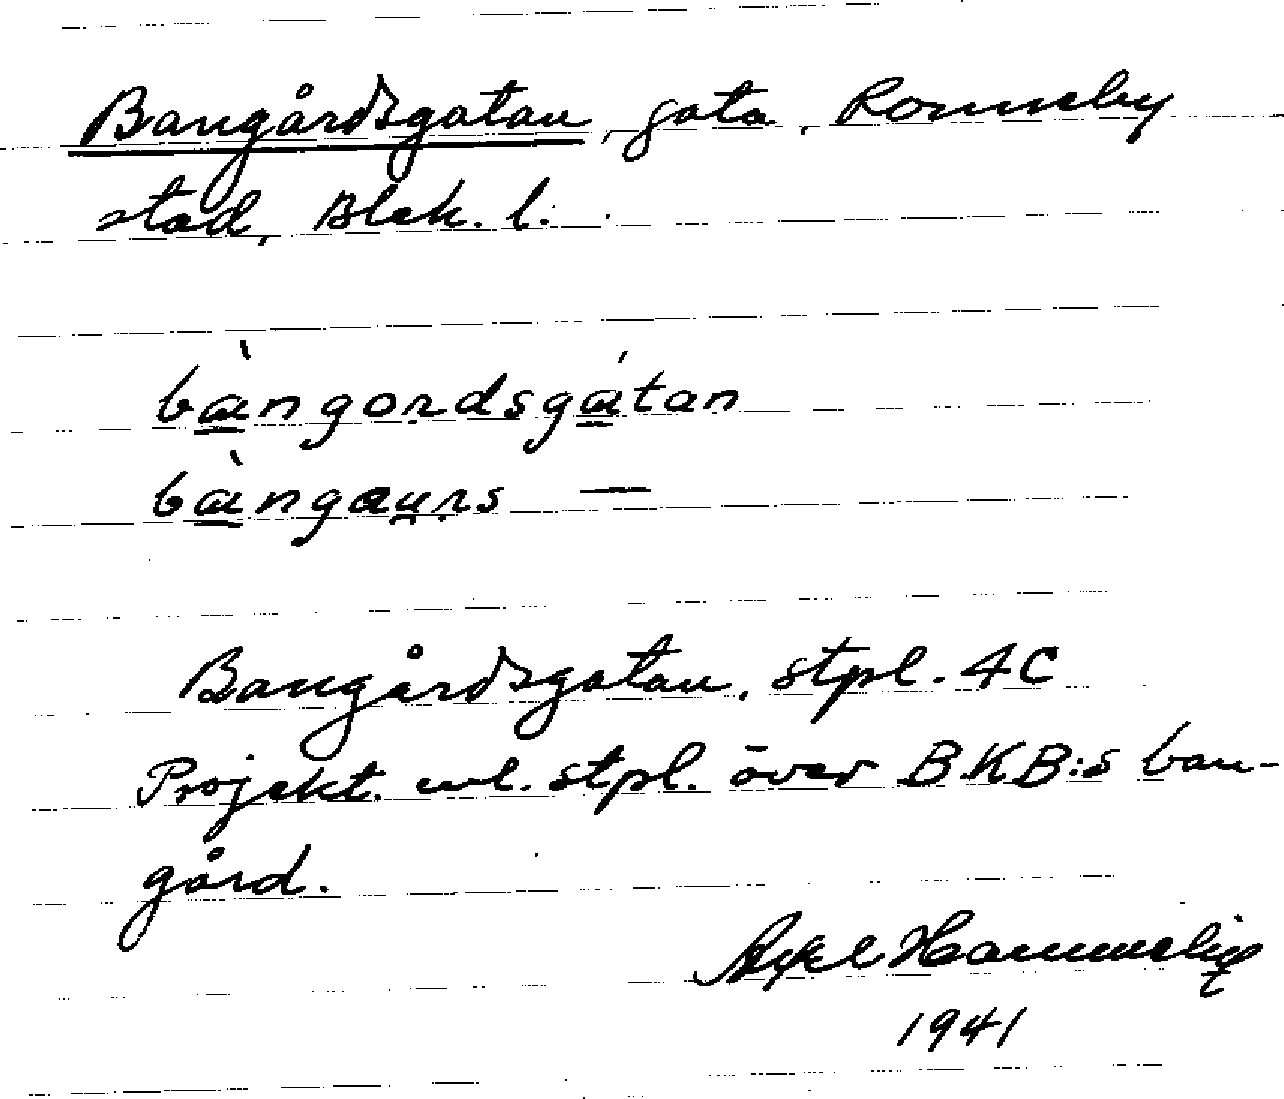 Bangårdsgatan, gata, Ronneby
stad, Blek. l.
bàngordsgátan
bàngaurs —
Bangårdsgatan, stpl. 4C
Projekt. enl. stpl. över BKB:s ban-
gård.
Axel
1941